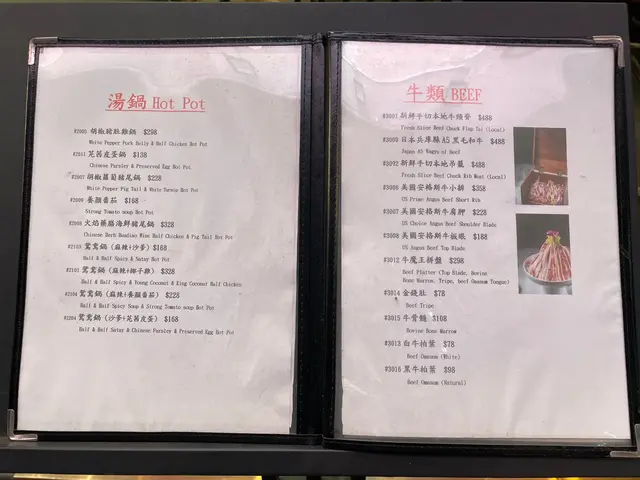 湯鍋 Hot Pot
#2005 胡椒豬肚雞鍋 $298
White Pepper Pork Belly & Half Chicken Hot Pot
#2051 芫茜皮蛋鍋 $138
Chinese Parsley & Preserved Egg Hot Pot
#2007 胡椒蘿蔔豬尾鍋 $228
White Pepper Pig Tail & White Turnip Hot Pot
#2009 養顏番茄 $168
Strong Tomato soup Hot Pot
#2008 火焰藥膳海鮮豬尾鍋 $328
Chinese Herb Huadiao Wine Half Chicken & Pig Tail Hot Pot
#2103 鴛鴦鍋 (麻辣+沙爹) $168
Half & Half Spicy & Satay Hot Pot
#2101 鴛鴦鍋 (麻辣+椰子雞) $328
Half & Half Spicy & Young Coconut & King Coconut Half Chicken
#2104 鴛鴦鍋 (麻辣+養顏番茄) $228
Half & Half Spicy Soup & Strong Tomato soup Hot Pot
#2204 鴛鴦鍋 (沙爹+芫茜皮蛋) $168
Half & Half Satay & Chinese Parsley & Preserved Egg Hot Pot
牛類 BEEF
#3001 新鮮手切本地牛頸脊 $488
Fresh Slice Beef Chuck Flap Tai (Local)
#3009 日本兵庫縣 A5 黑毛和牛 $488
Japan A5 Wagyu of Beef
#3002 新鮮手切本地吊龍 $488
Fresh Slice Beef Chuck Rib Meat (Local)
#3006 美國安格斯牛小排 $358
US Prime Angus Beef Short Rib
#3007 美國安格斯牛𦟌 $228
US Choice Angus Beef Shoulder Blade
#3008 美國安格斯牛板眼 $188
US Angus Beef Top Blade
#3012 牛魔王拼盤 $298
Beef Platter (Top Blade, Bovine
Bone Marrow, Tripe, beef Omasum Tongue)
#3014 金錢肚 $78
Beef Tripe
#3015 牛骨髓 $108
Bovine Bone Marrow
#3013 白牛柏葉 $78
Beef Omasum (White)
#3016 黑牛柏葉 $98
Beef Omasum (Natural)